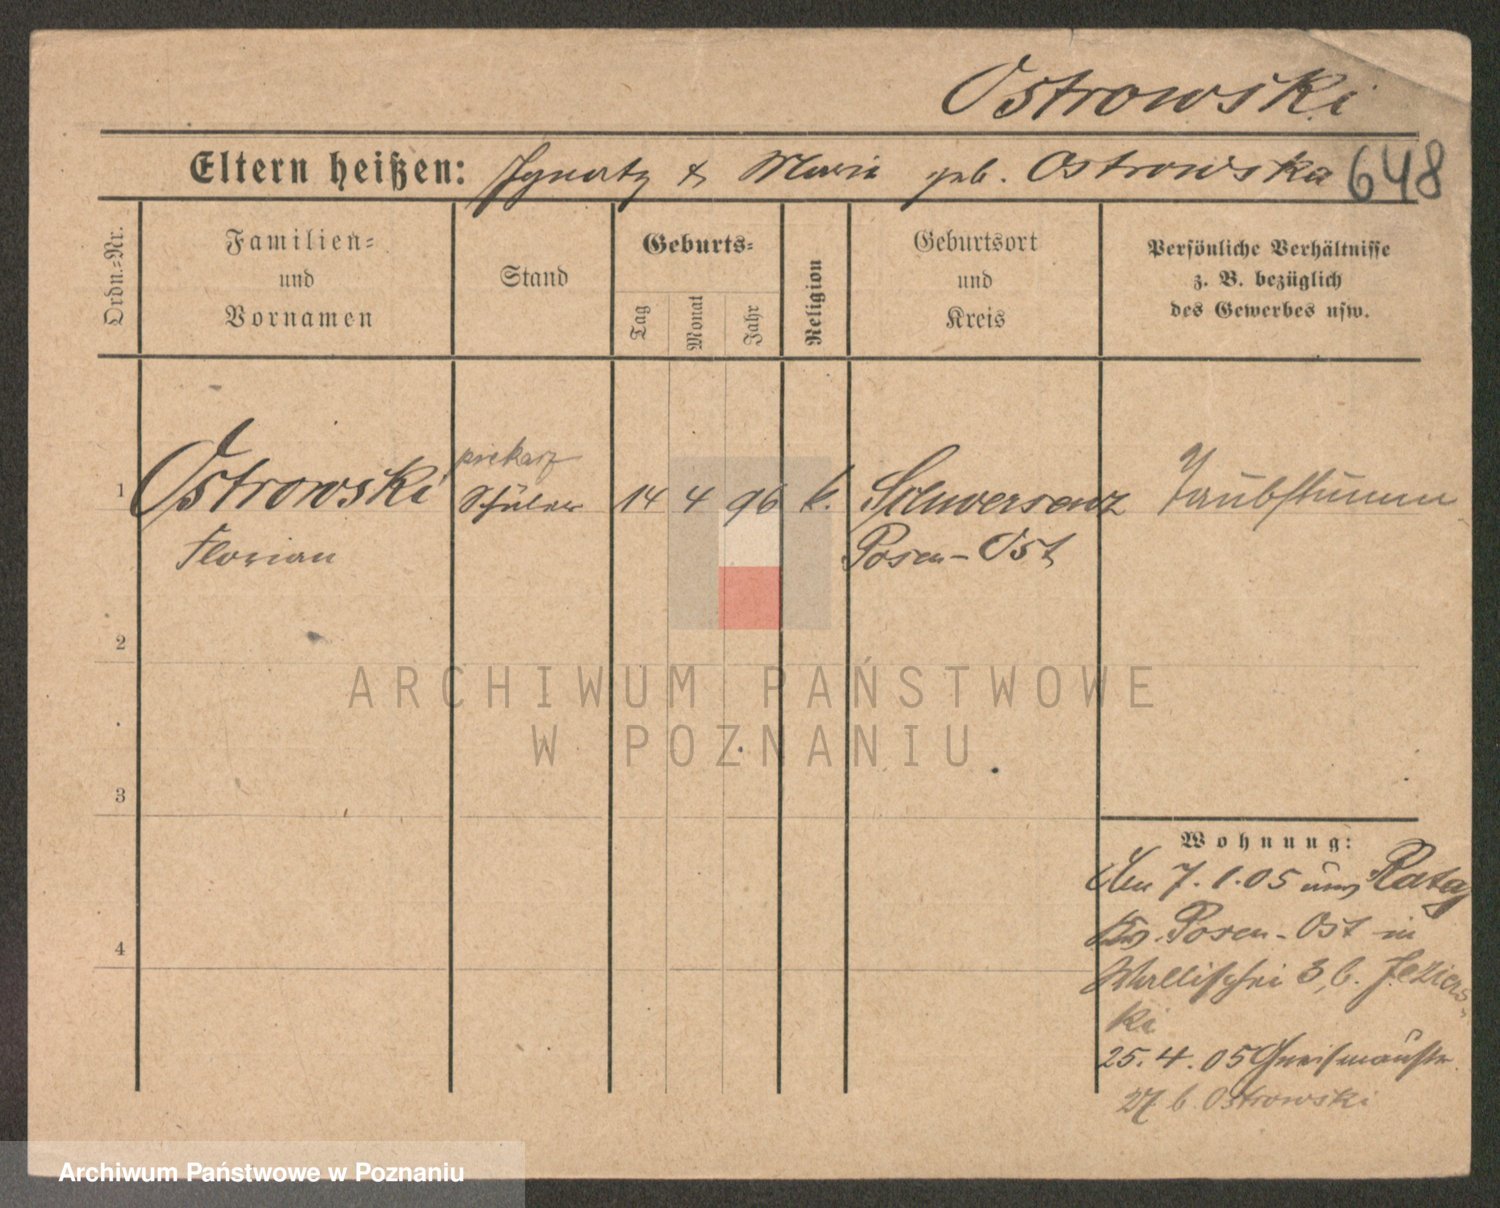 Ostrowski
Eltern heißen: Ignatz & Marie geb. Ostrowska 648
Ordn.-Nr.
Familien-
und
Vornamen
Stand
Geburts-
Tag
Monat
Jahr
Religion
Geburtsort
und
Kreis
Persönliche Verhältnisse
z. B. bezüglich
des Gewerbes usw.
piekarz
1 Ostrowski Schüler 14 4 96 k. Schwersenz Taubstumm
Florian Posen-Ost
2
3
4
ARCHIWUM PAŃSTWOWE
W POZNANIU
Wohnung:
Am 7.1.05 aus Rataj
Kr. Posen-Ost in
Wallischei 3, b. Jeziers-
ki
25.4.05
27 b. Ostrowski
Archiwum Państwowe w Poznaniu